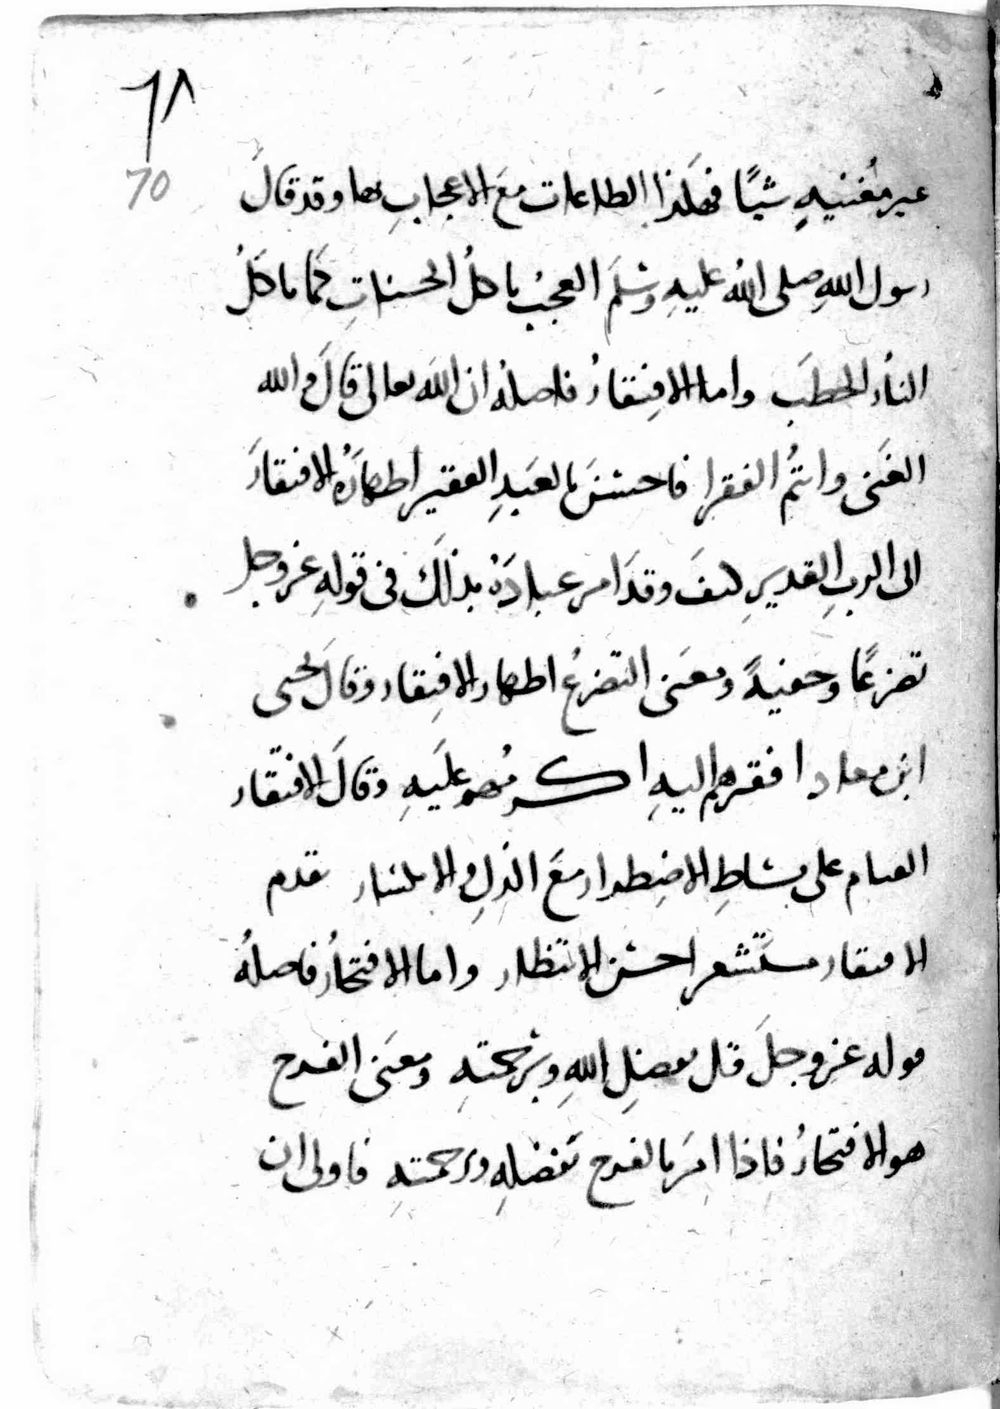 ٦٨
70
غير مغنيه شيًا فهكذا الطاعات مع الاعجاب بها وقد قال
رسول الله صلى الله عليه وسلم العجب ياكل الحسنات كما تاكل
النار الحطب واما الافتقار فاصله ان الله تعالى قال والله
الغنى وانتم الفقرا فاحسن بالعبد الفقير اظهاره الافتقار
الى الرب القدير كيف وقد امر عباده بذلك فى قوله عز وجل
تضرعًا وخفيةً ومعنى التضرع اظهار الافتقار وقال يحيى
ابن معاد افقرهم اليه اكرمهم عليه وقال الافتقار
القيام على بساط الاضطرار مع الذل والانكسار تقدم
الافتقار مستشعر احسن الانتظار واما الافتخار فاصله
قوله عز وجل قل بفضل الله وبرحمته ومعنى الفرح
هو الافتخار فاذا امر بالفرح بفضله ورحمته فاولى ان